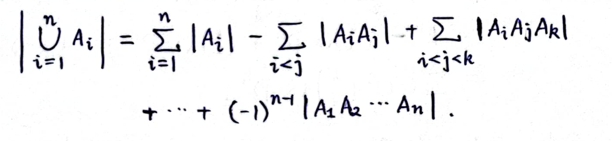 |⋃_{i=1}^{n} A_i| = ∑_{i=1}^{n} |A_i| - ∑_{i<j} |A_i A_j| + ∑_{i<j<k} |A_i A_j A_k|
+ ⋯ + (-1)^{n-1} |A_1 A_2 ⋯ A_n|.